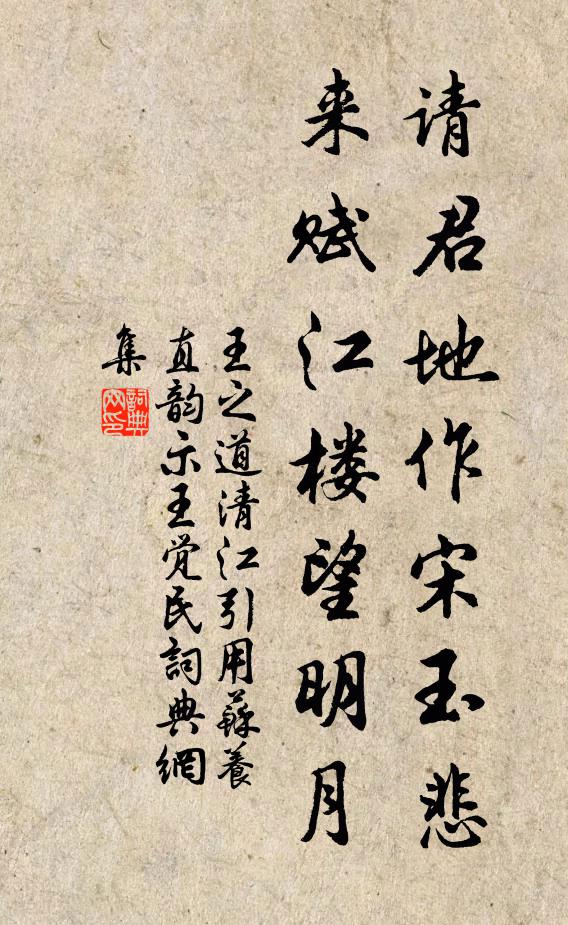 请君地作宋玉悲
来赋江楼望明月
王之道清江引用蘇養
直韵示王觉民詞典網
集
詞典网印